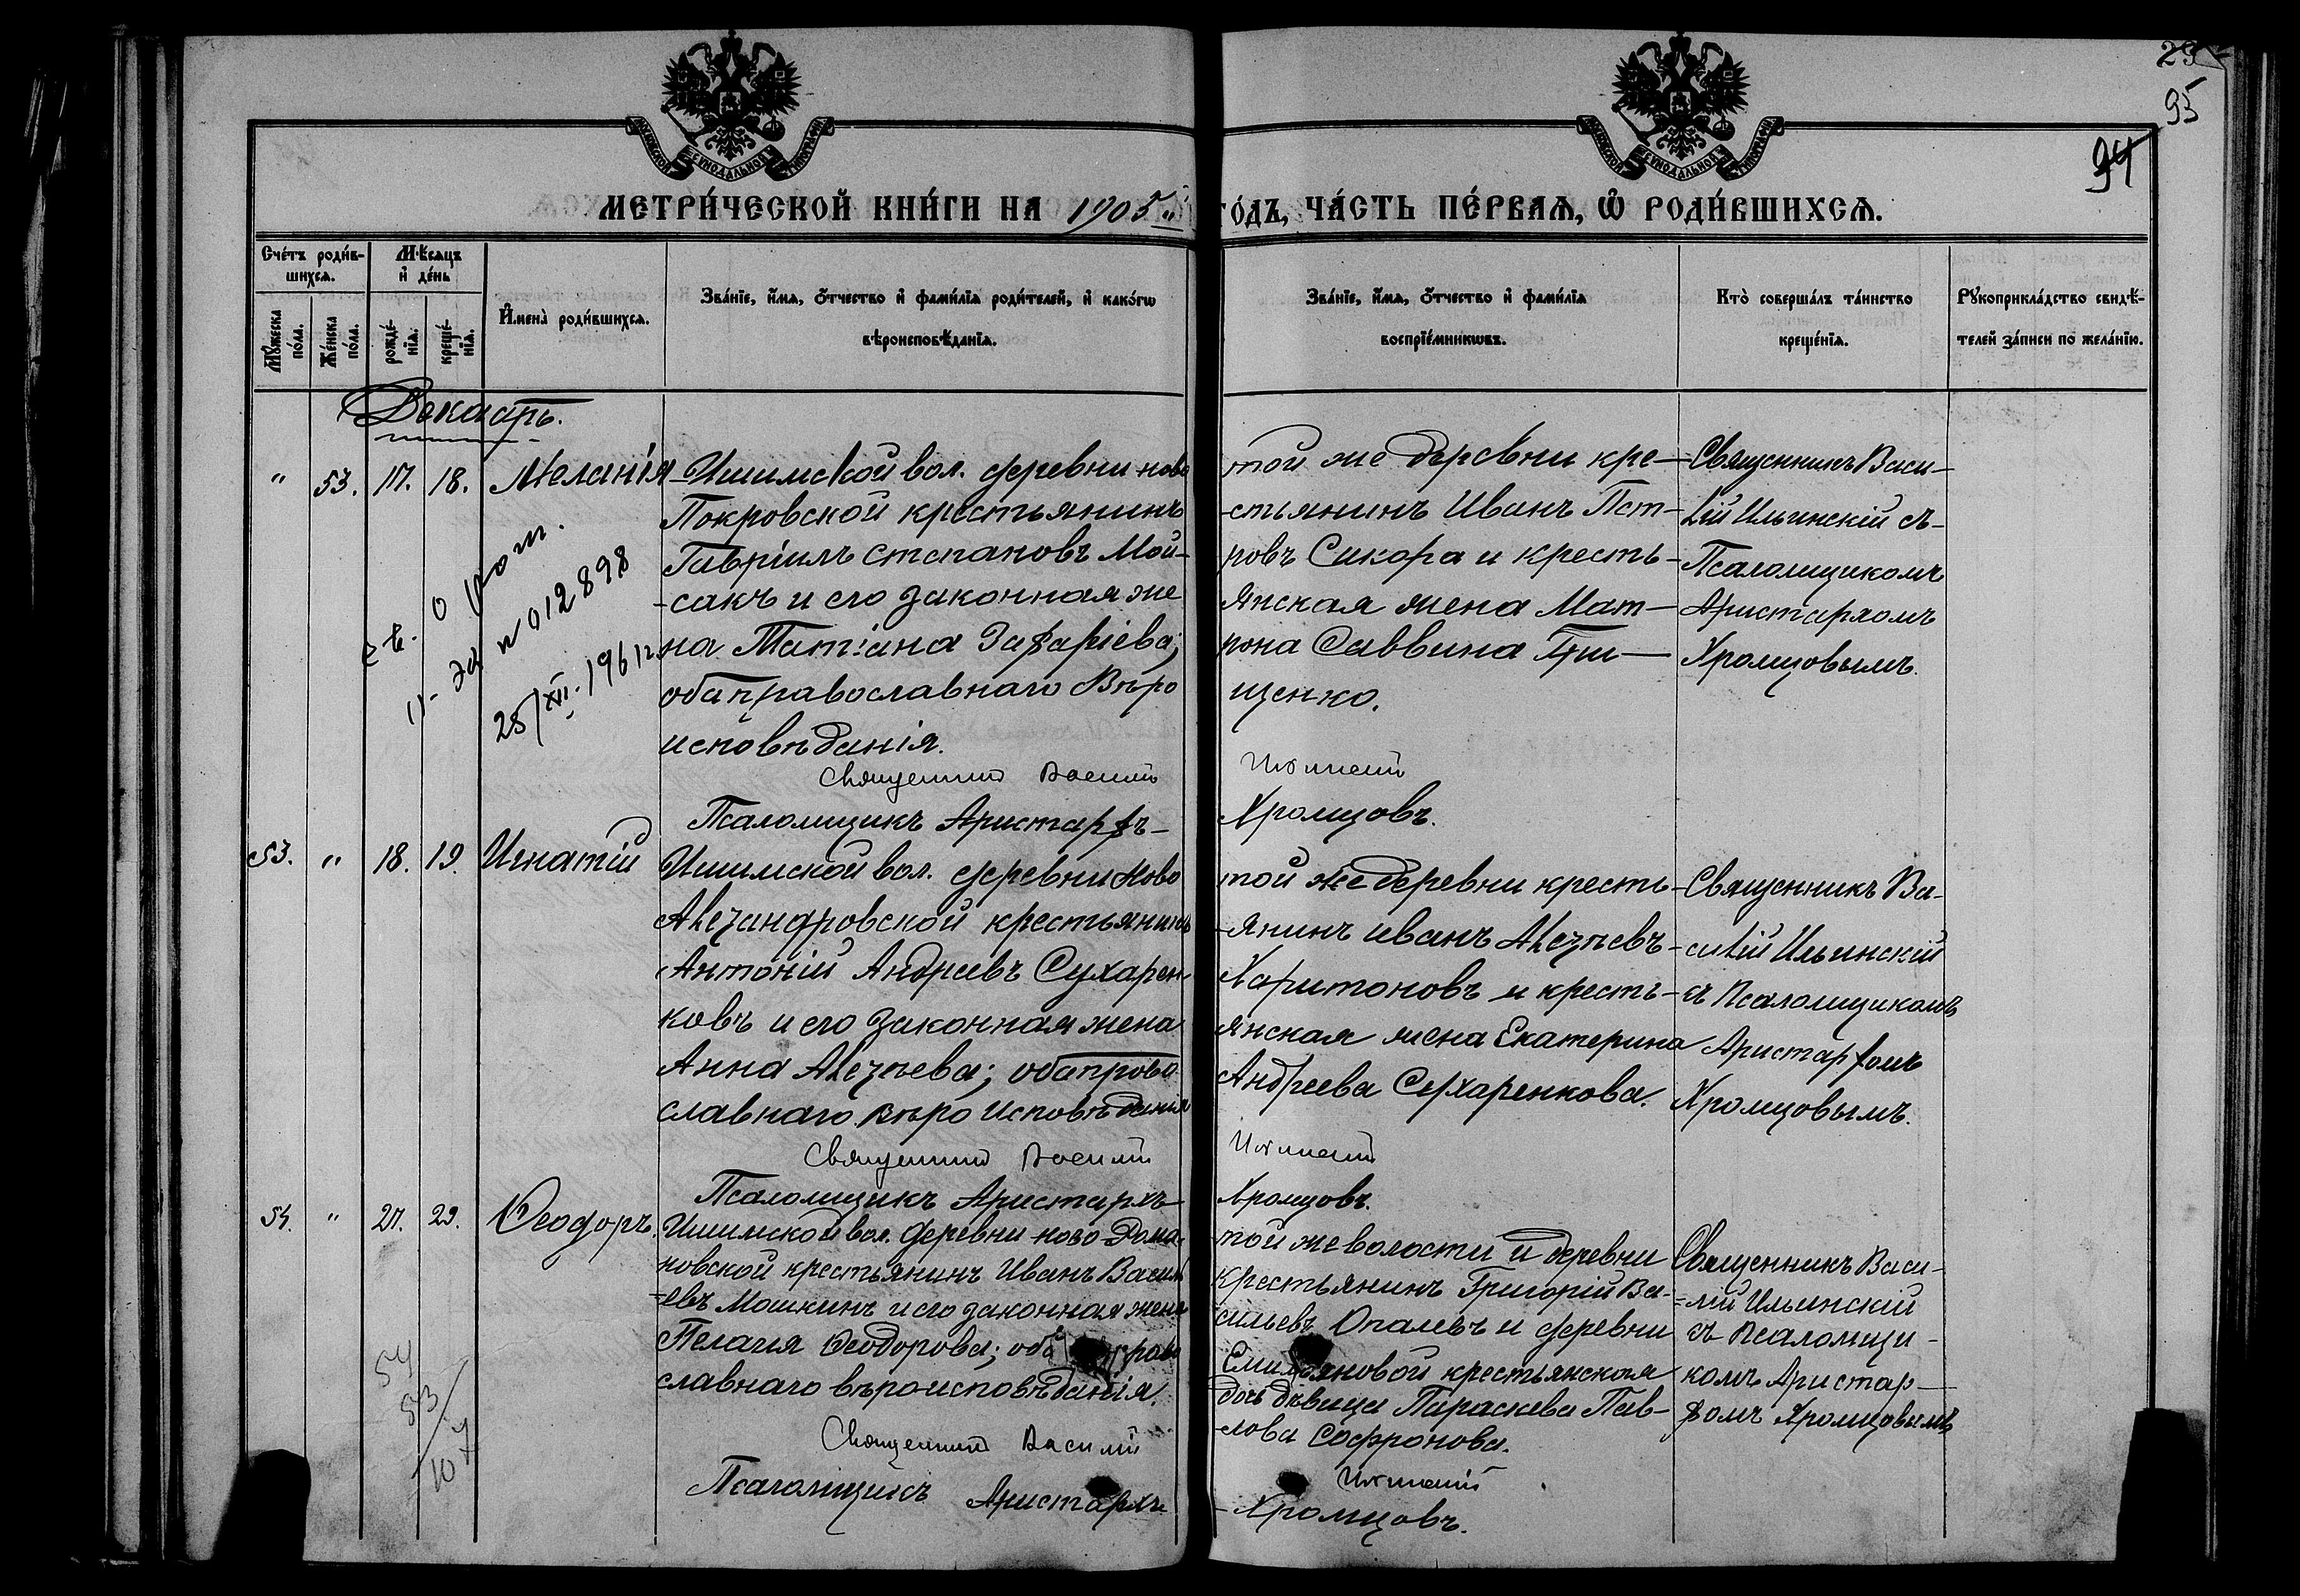 29
95
94
МОСКОВСКОЙ СѴНОДАЛЬНОЙ ТИПОГРАФІИ
МОСКОВСКОЙ СѴНОДАЛЬНОЙ ТИПОГРАФІИ
МЕТРИ́ЧЕСКОЙ КНИ́ГИ НА 1905 й
ГО́ДЪ, ЧА́СТЬ ПЕ́РВАѦ, Ѡ҆ РОДИ́ВШИХСѦ.
Сче́тъ роди́в-
шихсѧ.
Мꙋ́жеска по́ла.
Же́нска по́ла.
Мѣ́сѧцъ
и҆ де́нь
рожде́-
нїѧ.
креще́-
нїѧ.
И҆мена̀ роди́вшихсѧ.
Зва́нїе, и҆́мѧ, ѻ҆́тчество и҆ фами́лїѧ роди́телей, и҆ како́гѡ
вѣроисповѣ́данїѧ.
Зва́нїе, и҆́мѧ, ѻ҆́тчество и҆ фами́лїѧ
воспрїе́мникѡвъ.
Кто̀ соверша́лъ та́инство
креще́нїѧ.
Рꙋкоприкла́дство свидѣ́-
телей за́писи по жела́нїю.
Декабрь.
" 53. 17. 18. Меланія
Ишимской вол. деревни ново
Покровской крестьянинъ
Гавріилъ Степановъ Мой-
-сакъ и его законная же
на Татіана Захаріева;
оба православнаго Вѣро
исповѣданія.
Священникъ Василій
Псаломщикъ Аристархъ-
той же деревни кре-
-стьянинъ Иванъ Пет-
ровъ Сикора и кресть-
янская жена Мат-
рона Саввина Гри-
щенко.
Ильинскій
Хромцовъ.
Священникъ Васи-
лій Ильинскій съ-
Псаломщикомъ
Аристархомъ
Хромцовымъ.
св. о рож.
11- ЭД № 012898
25/XII. 1961г.
53. " 18. 19. Игнатій
Ишимской вол. деревни Ново
Александровской крестьянинъ
Антоній Андреевъ Сухарен-
ковъ и его законная жена
Анна Алексѣева; оба право
славнаго вѣро исповѣданія
Священникъ Василій
Псаломщикъ Аристархъ-
той же деревни кресть-
-янинъ иванъ Алексѣевъ-
Харитоновъ и кресть-
янская жена Екатерина
Андреева Сухаренкова.
Ильинскій
Хромцовъ.
Священникъ Ва-
силій Ильинскій
съ Псаломщикомъ
Аристархомъ
Хромцовымъ.
54. " 27. 29. Ѳеодоръ.
Ишимской вол. деревни ново-Рома-
новской крестьянинъ Иванъ Василь
=евъ Мошкинъ и его законная жена
Пелагія Ѳеодорова; оба право
славнаго вѣроисповѣданія.
Священникъ Василій
Псаломщикъ Аристархъ
той же волости и деревни
крестьянинъ Григорій Ва-
сильевъ Опалевъ и деревни
Емильяновой крестьянская
дочь дѣвица Параскева Пав-
-лова Софронова.
Ильинскій
-Хромцовъ.
Священникъ Васи-
=лій Ильинскій
съ Псаломщи-
комъ Аристар-
хомъ Хромцовымъ
54
53
107